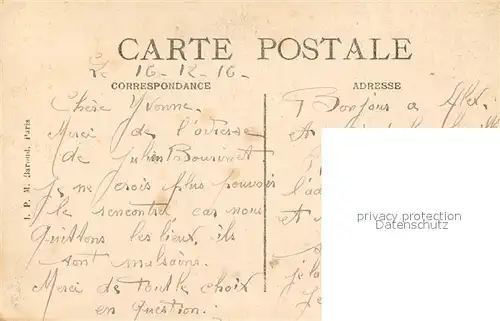 CARTE POSTALE
Le 16-12-16-
CORRESPONDANCE
Chère Yvonne.
Merci de l'adresse
de Julien Bourinet
Je ne crois plus pouvoir
le rencontré car nous
quittons les lieux, ils
sont malsains.
Merci de toutle choix
en question.
ADRESSE
Bonjour a Alex.
l'ad
et
Je
I. P. M. Paris
privacy protection
Datenschutz